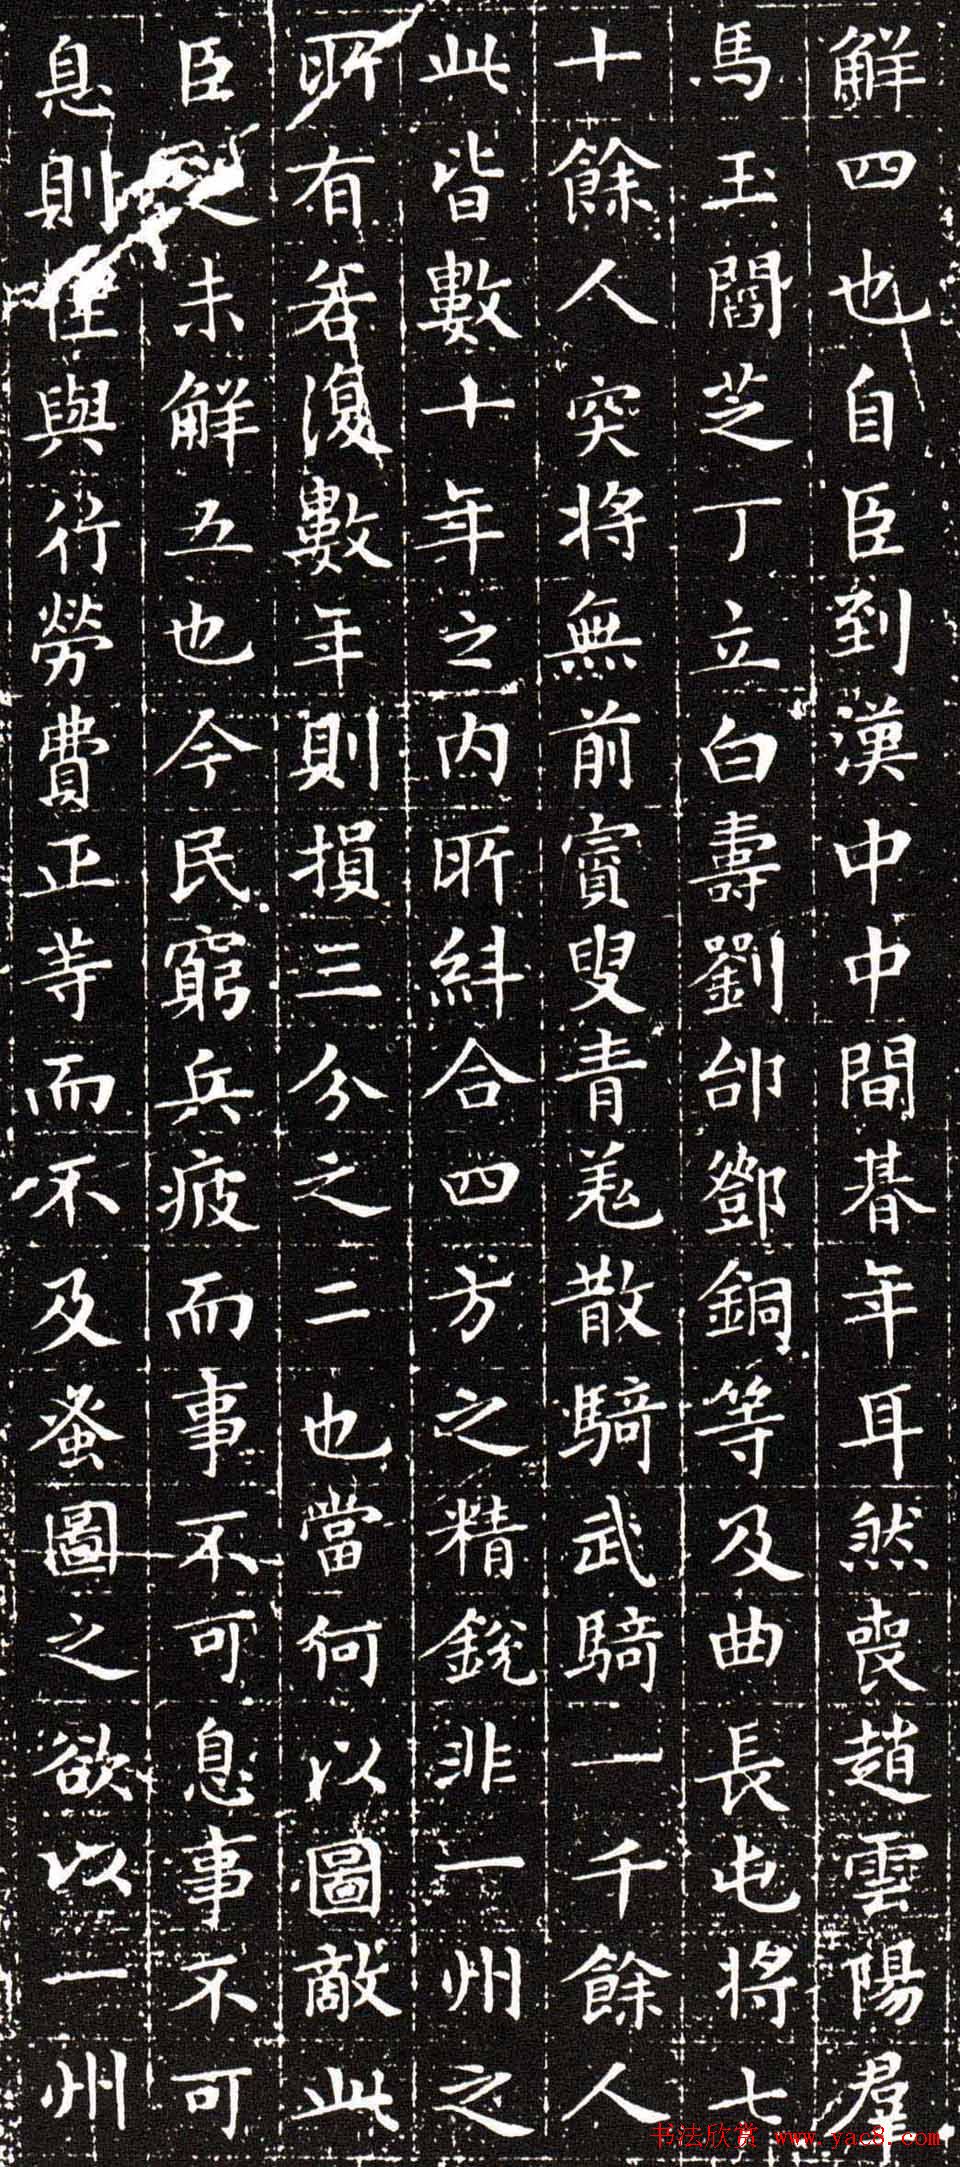 解四也自臣到漢中中間朞年耳然喪趙雲陽羣
馬玉閻芝丁立白壽劉郃鄧銅等及曲長屯將七
十餘人突將無前賨叟青羌散騎武騎一千餘人
此皆數十年之內所糾合四方之精銳非一州之
所有若復數年則損三分之二也當何以圖敵此
臣之未解五也今民窮兵疲而事不可息事不可
息則住與行勞費正等而不及蚤圖之欲以一州
书法欣赏 www.yac8.com